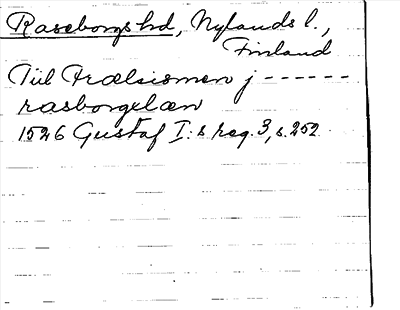 Raseborgs hd, Nylands l.,
Finland
Till Frælsismen j ------
rasborgelæn
1526 Gustaf I:s reg. 3, s. 252